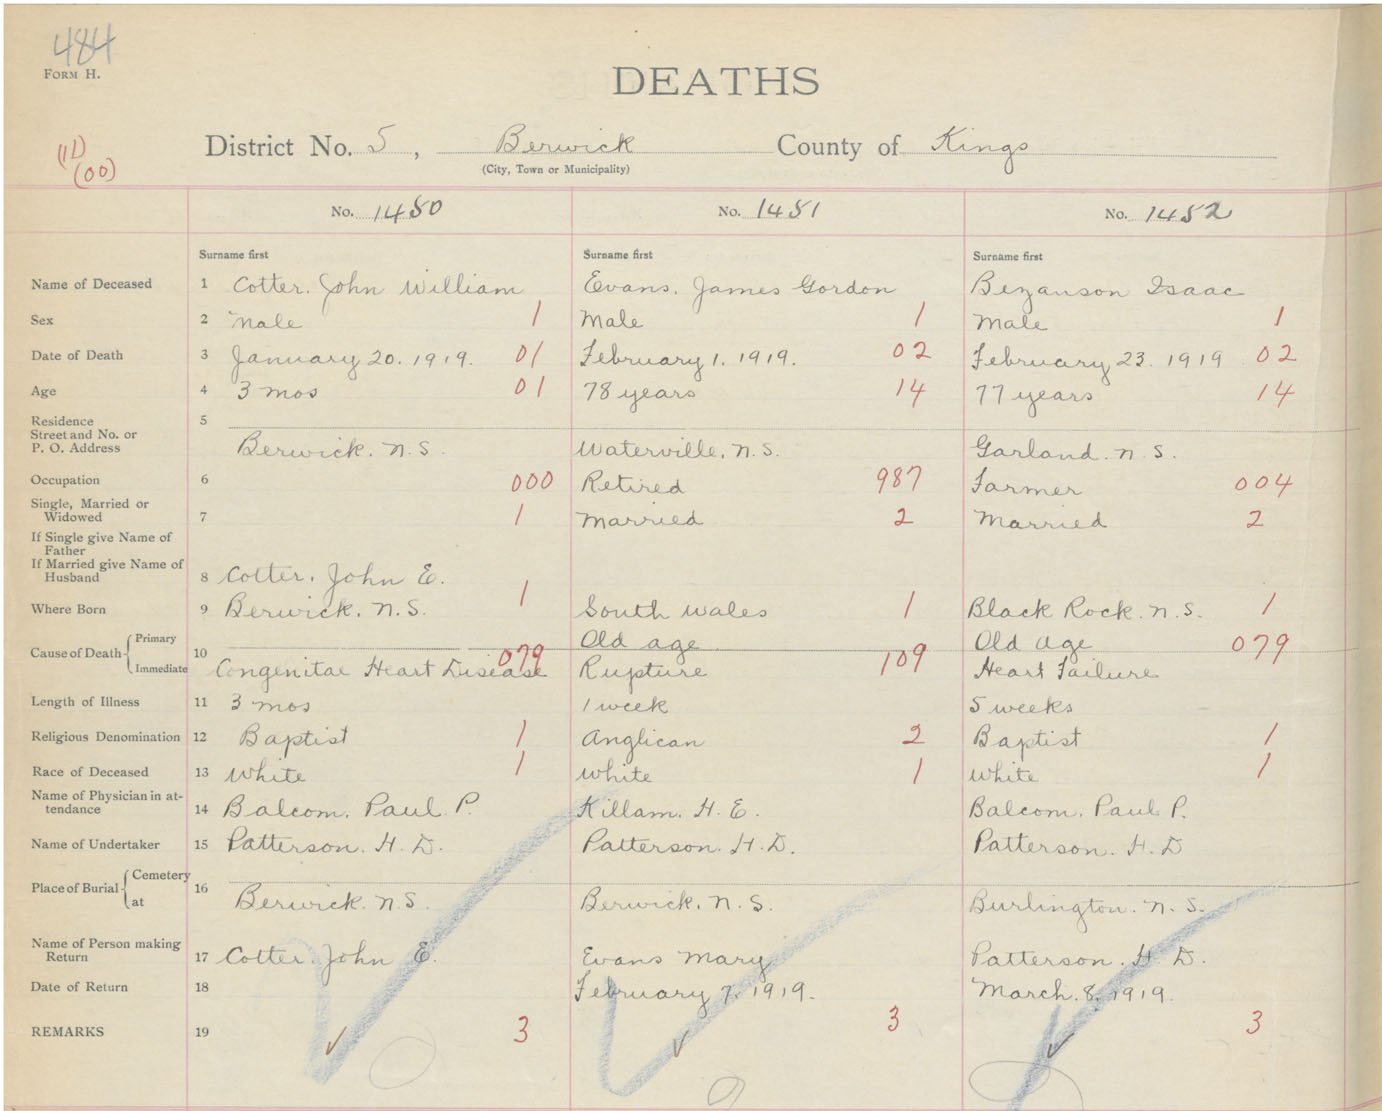 484
FORM H.
DEATHS
(11)
(00)
District No. 5, Berwick County of Kings
(City, Town or Municipality)
No. 1450 No. 1451 No. 1452
Surname first Surname first Surname first
Name of Deceased 1 Cotter. John William Evans. James Gordon Bezanson Isaac
Sex 2 Male 1 Male 1 Male 1
Date of Death 3 January 20. 1919. 01 February 1. 1919. 02 February 23. 1919 02
Age 4 3 mos 01 78 years 14 77 years 14
Residence 5
Street and No. or
P. O. Address Berwick. N.S. Waterville, N.S. Garland. N.S.
Occupation 6 000 Retired 987 Farmer 004
Single, Married or
Widowed 7 1 Married 2 Married 2
If Single give Name of
Father
If Married give Name of
Husband 8 Cotter. John E.
Where Born 9 Berwick. N.S. 1 South Wales 1 Black Rock. N.S. 1
Cause of Death Primary 10 Old age Old age
079 109 079
Immediate Congenital Heart Disease Rupture Heart Failure
Length of Illness 11 3 mos 1 week 5 weeks
Religious Denomination 12 Baptist 1 Anglican 2 Baptist 1
Race of Deceased 13 White 1 White 1 White 1
Name of Physician in at-
tendance 14 Balcom. Paul P. Killam. H. E. Balcom. Paul P.
Name of Undertaker 15 Patterson. H. D. Patterson. H. D. Patterson. H. D
Place of Burial Cemetery 16
at Berwick. N.S. Berwick. N.S. Burlington. N.S.
Name of Person making
Return 17 Cotter. John E. Evans Mary Patterson. H. D.
Date of Return 18 February 7. 1919. March. 8. 1919.
REMARKS 19 3 3 3